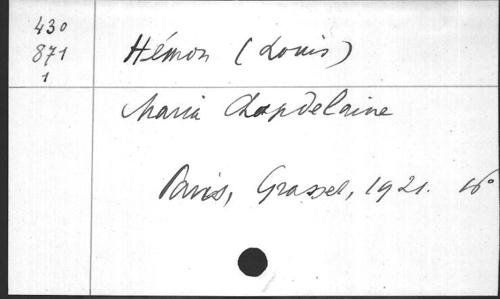 430
871
1
Hémon (Louis)
Maria Chapdelaine
Paris, Grasset, 1921. 16°